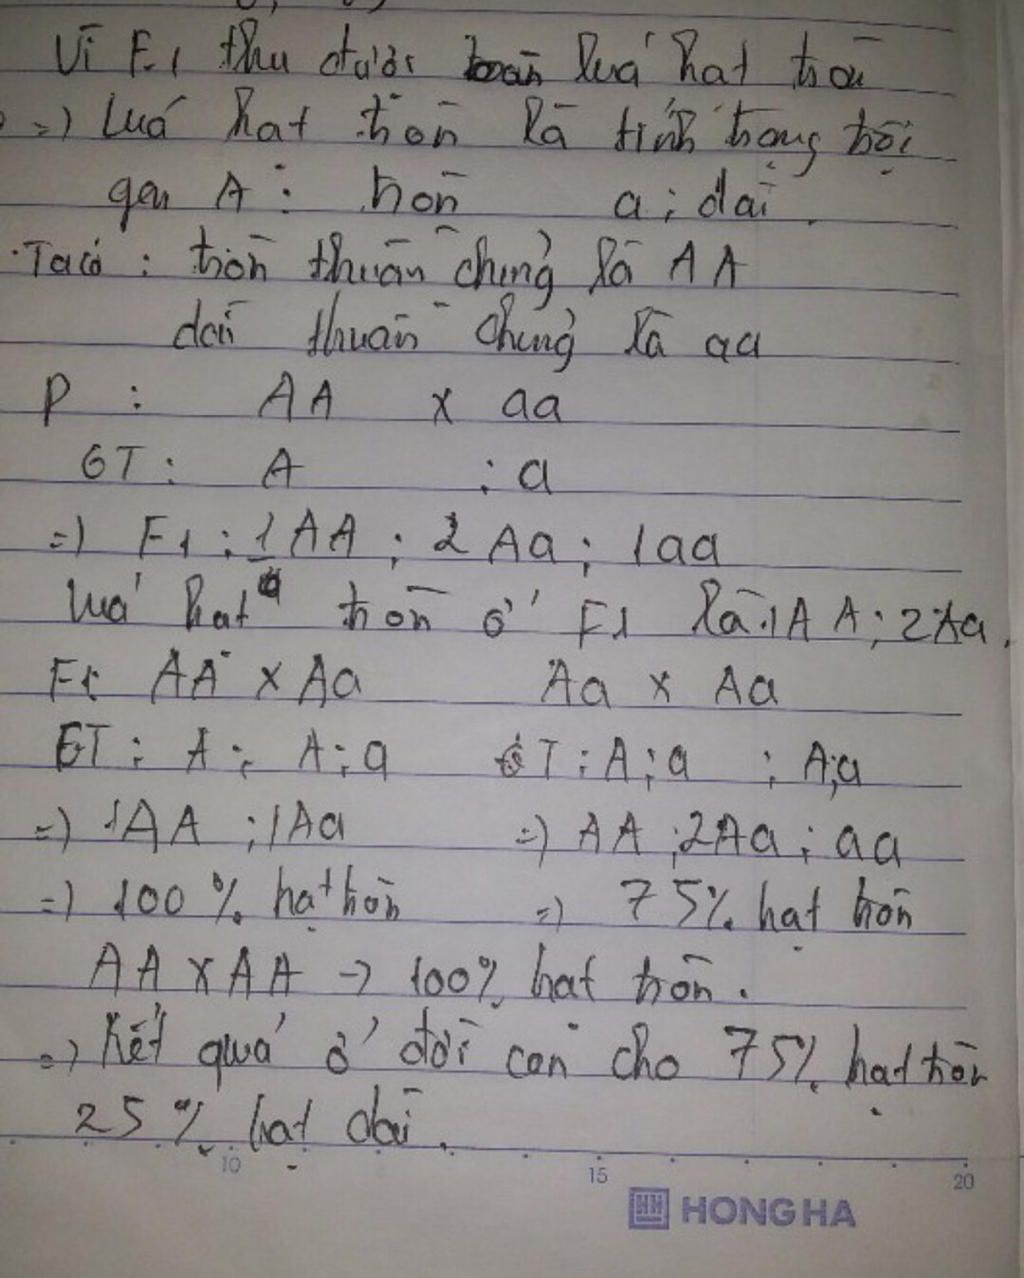 Vì F1 thu được toàn lúa hạt tròn
=> Lúa hạt tròn là tính trạng trội
gen A : tròn a : dài
Ta có : tròn thuần chủng là AA
dài thuần chủng là aa
P : AA x aa
GT : A ; a
=> F1 : 1AA ; 2Aa ; 1aa
lúa hạt tròn ở F1 là 1AA ; 2Aa.
F1: AA x Aa Aa x Aa
GT : A ; A ; a GT : A ; a ; A;a
=> 1AA ; 1Aa => AA ; 2Aa ; aa
=> 100% hạt tròn => 75% hạt tròn
AA x AA -> 100% hạt tròn .
=> Kết quả ở đời con cho 75% hạt tròn
25% hạt dài .
10 15 20
HH HONG HA